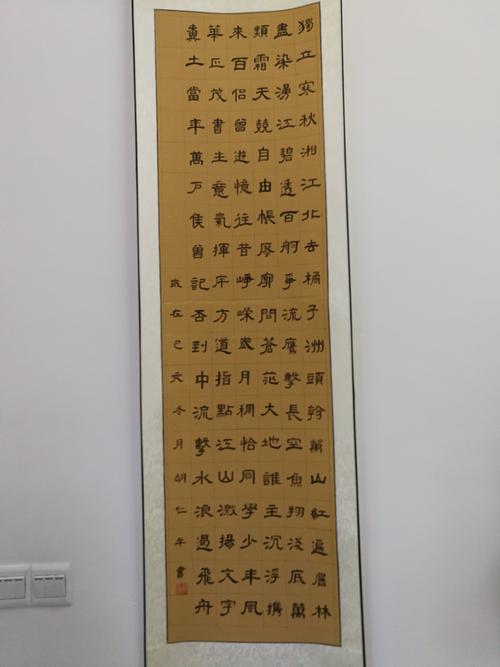 獨立寒秋湘江北去橘子洲頭看萬山紅遍層林
盡染漫江碧透百舸爭流鷹擊長空魚翔淺底萬
類霜天競自由悵廖廓問蒼茫大地誰主沉浮攜
來百侶曾遊憶往昔崢嶸歲月稠恰同學少年風
華正茂書生意氣揮斥方遒指點江山激揚文字
糞土當年萬戶侯曾記否到中流擊水浪遏飛舟
歲在己亥冬月胡仁平書